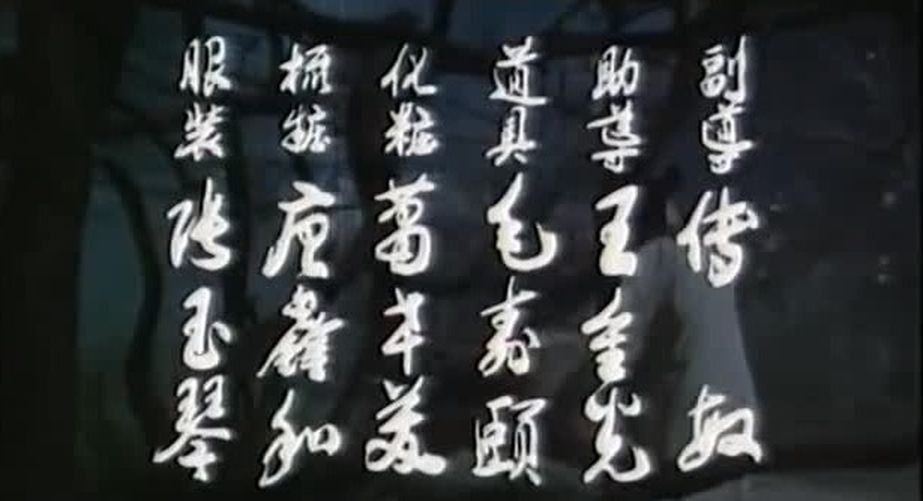 副導 傅敏
助導 王金光
道具 毛壽頤
化粧 葛美
梳粧 和
服裝 張玉琴